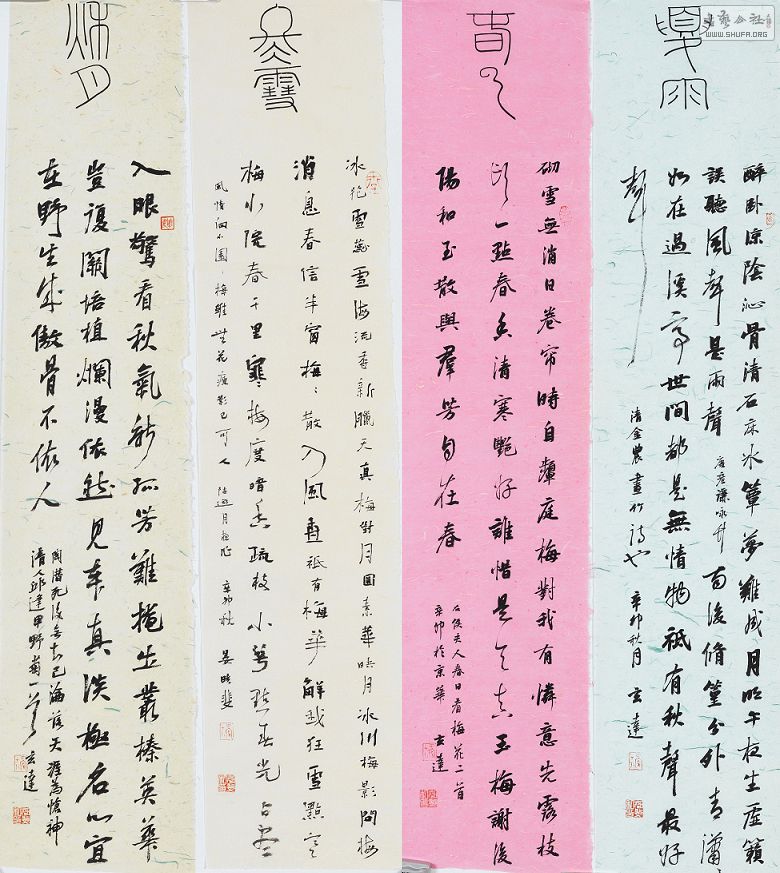 書藝公社
WWW.SHUFA.ORG
夏雨
醉卧涼陰沁骨清石床冰簟夢難成月明午夜生虛籟
誤聽風聲是雨聲 唐彥謙詠竹 雨後脩篁分外青瀟
如在過溪亭世間都是無情物祇有秋聲最好
聽
清金農畫竹詩也 辛卯秋月 玄達
春
砌雪無消日卷帘時自顰庭梅對我有憐意先露枝
頭一點春香清寒艷好誰惜是天真玉梅謝後
陽和至散與群芳自在春
石侯夫人春日看梅花二首
辛卯於京華 玄達
冬雪
冰艷雪海流香新臘天真梅對月圓素華映月冰川梅影問梅
消息春信半窗梅梅散入風祇有梅華解狂雪點寒
梅小院春千里寒梅度暗香疏枝小萼點春光占盡
風情向小園梅雖無花影已可人 月梅 辛卯秋
秋月
入眼驚看秋氣新孤芳難掩出叢榛英華
豈復關培植爛漫依然見本真淡極名心宜
在野生成傲骨不依人
陶潜死後無知己滿眼天涯為愴神
清人邱逢甲野菊一首 玄達